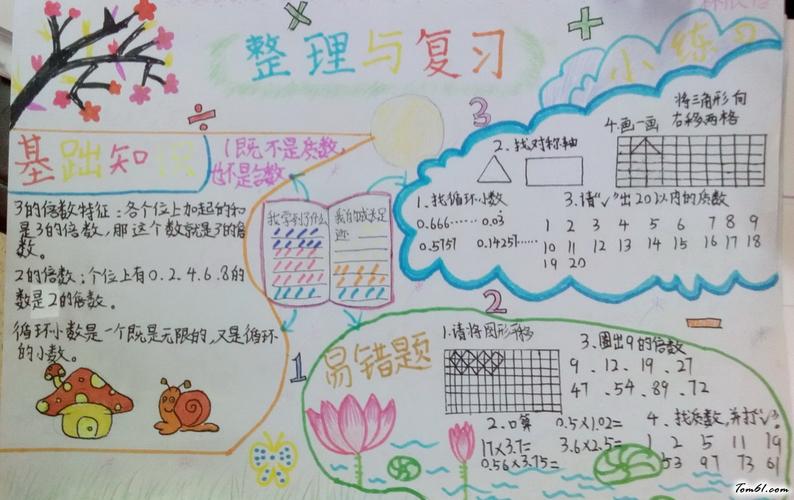 整理与复习
基础知识
1既不是质数,
也不是合数
3的倍数特征：各个位上加起的和
是3的倍数,那这个数就是3的倍
数。
2的倍数：个位上有0.2.4.6.8的
数是2的倍数。
循环小数是一个既是无限的,又是循环
的小数。
我学到了什么
我的成长足
迹
1
3
小练习
1.找循环小数
0.666……
0.03
0.5757
0.14257……
2.找对称轴
3.请“√”出20以内的质数
1 2 3 4 5 6 7 8 9
10 11 12 13 14 15 16 17 18
19 20
4.画一画
将三角形向
右移两格
2
易错题
1.请将图形平移
2.口算
0.5×1.02=
17×3.7=
3.6×2.5=
0.56×3.75=
3.圈出9的倍数
9 . 12 . 19 . 27
47 .54 .89 .72
4、找质数,并打“√”。
1 2 5 11 19
53 97 73 61
Tom61.com